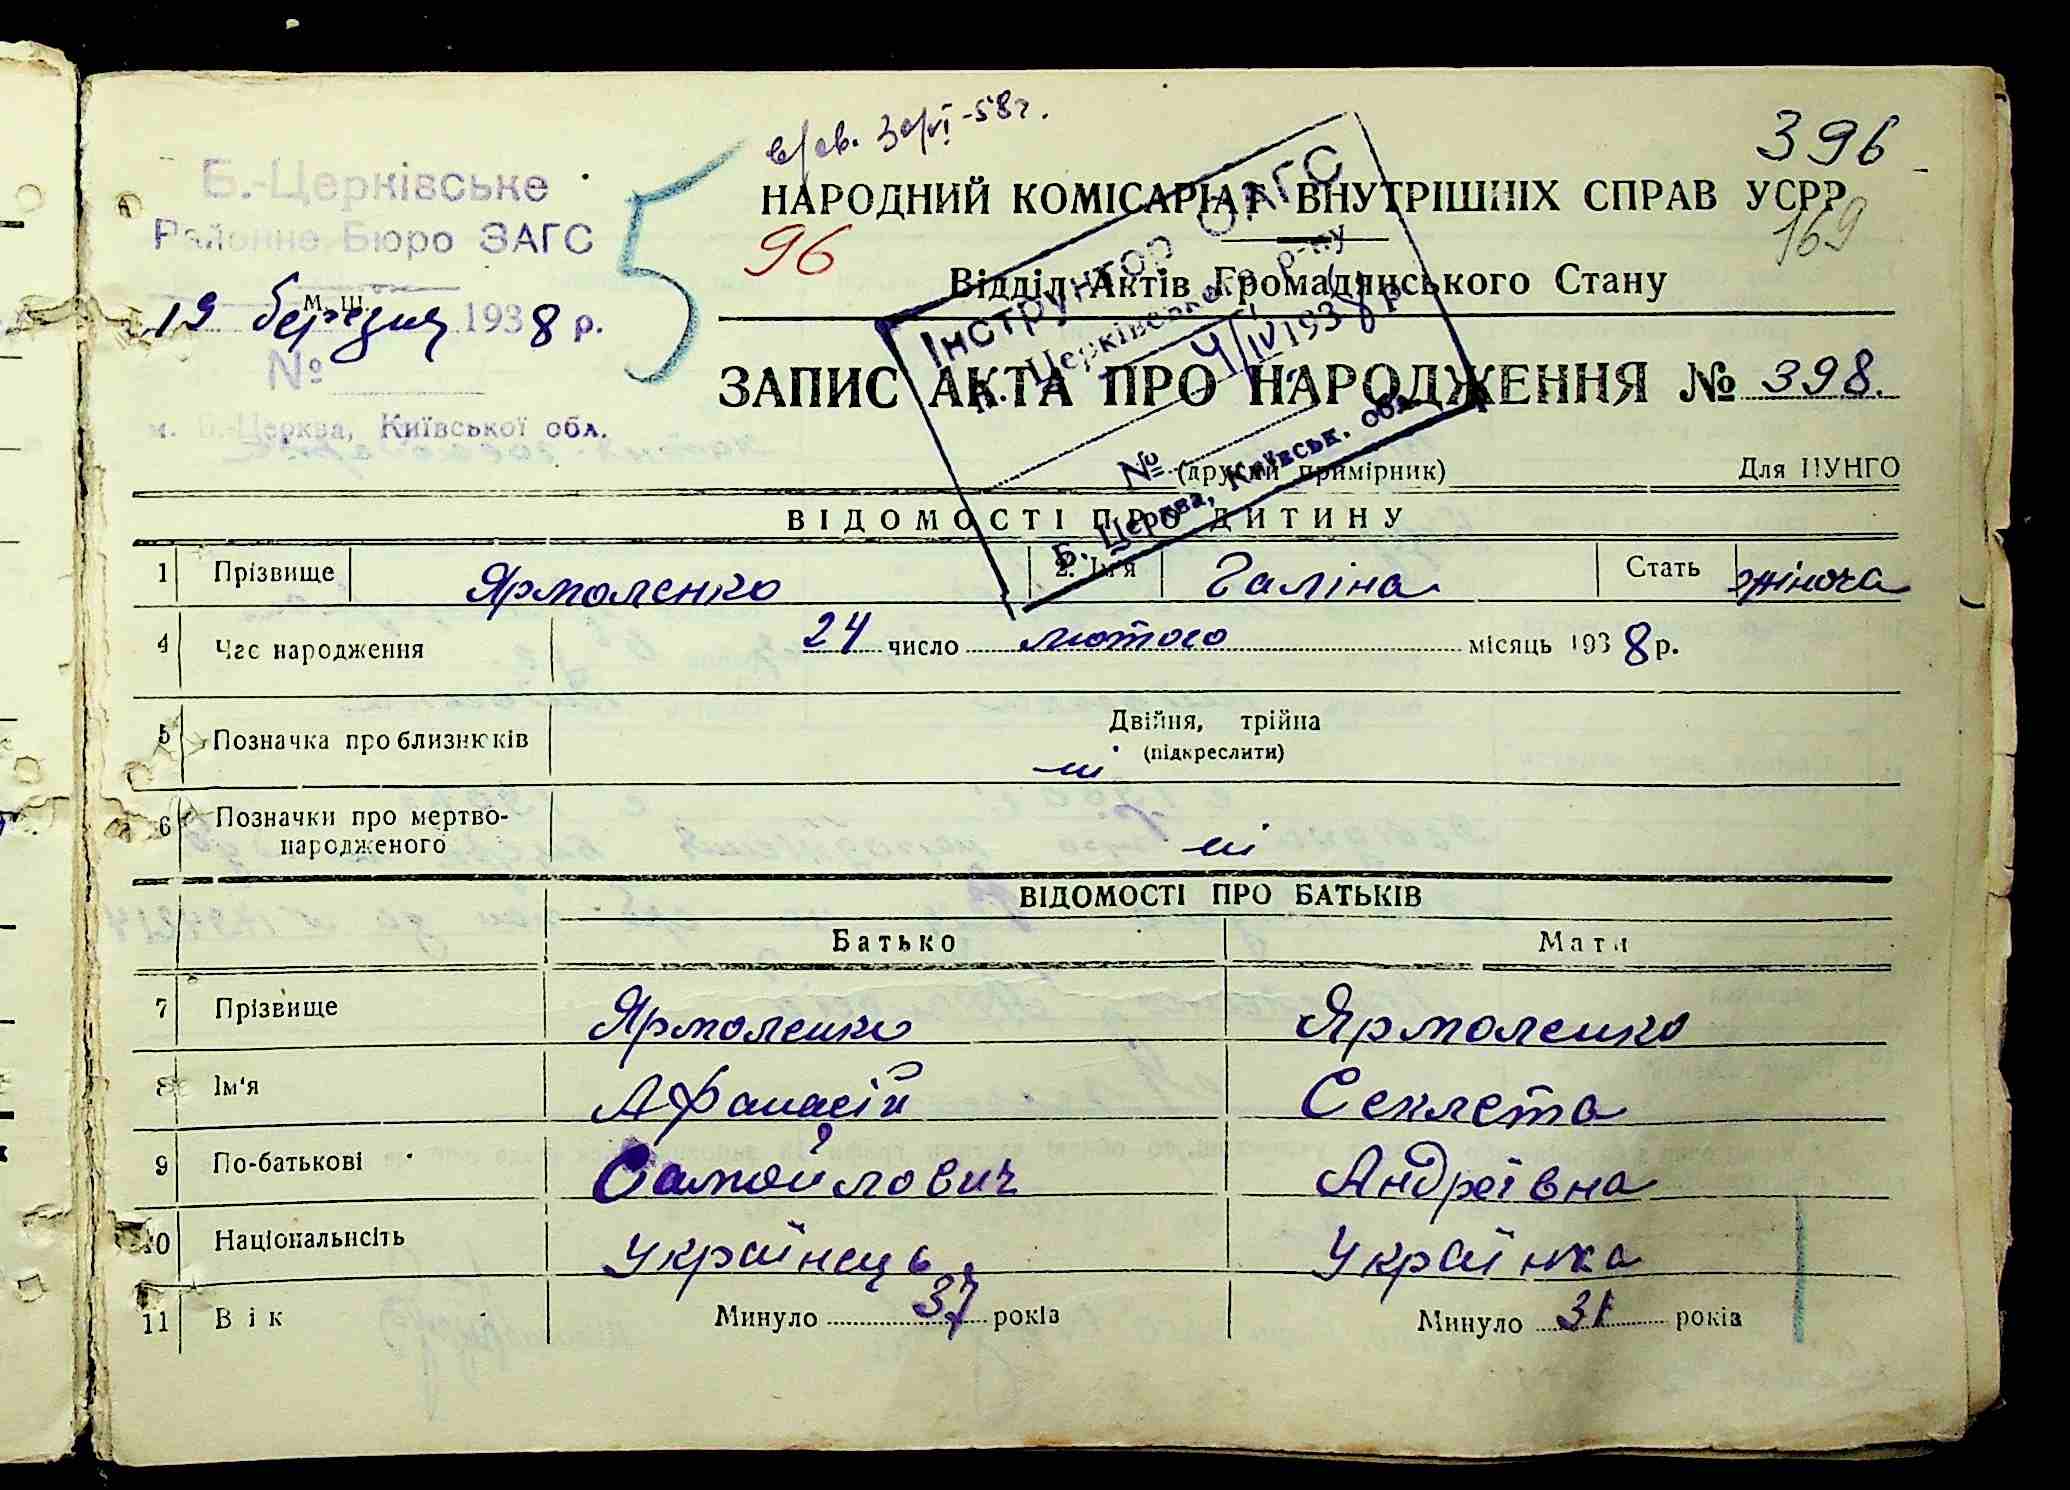 в/св. 30/VI-58г.
396
Б.-Церківське
Районне Бюро ЗАГС
м. ш.
19 березня 1938 р.
№
м. Б.-Церква, Київської обл.
5
НАРОДНИЙ КОМІСАРІАТ ВНУТРІШНІХ СПРАВ УСРР
169
96
Відділ Актів Громадянського Стану
Інструктор ОАГС
Б. Церківського р-ну
4/IV 1938 р.
№
Б. Церква, Київськ. обл.
ЗАПИС АКТА ПРО НАРОДЖЕННЯ № 398.
(другий примірник)
Для ЦУНГО
ВІДОМОСТІ ПРО ДИТИНУ
1 Прізвище Ярмоленко 2. Ім'я Галіна Стать жіноча
4 Час народження 24 число лютого місяць 1938 р.
5 Позначка про близнюків Двійня, трійна
(підкреслити)
ні
6 Позначки про мертво-
народженого ні
ВІДОМОСТІ ПРО БАТЬКІВ
Батько Мати
7 Прізвище Ярмоленко Ярмоленко
8 Ім'я Афанасій Секлета
9 По-батькові Самойлович Андреївна
10 Національнсіть Українець Українка
11 Вік Минуло 37 років Минуло 31 років